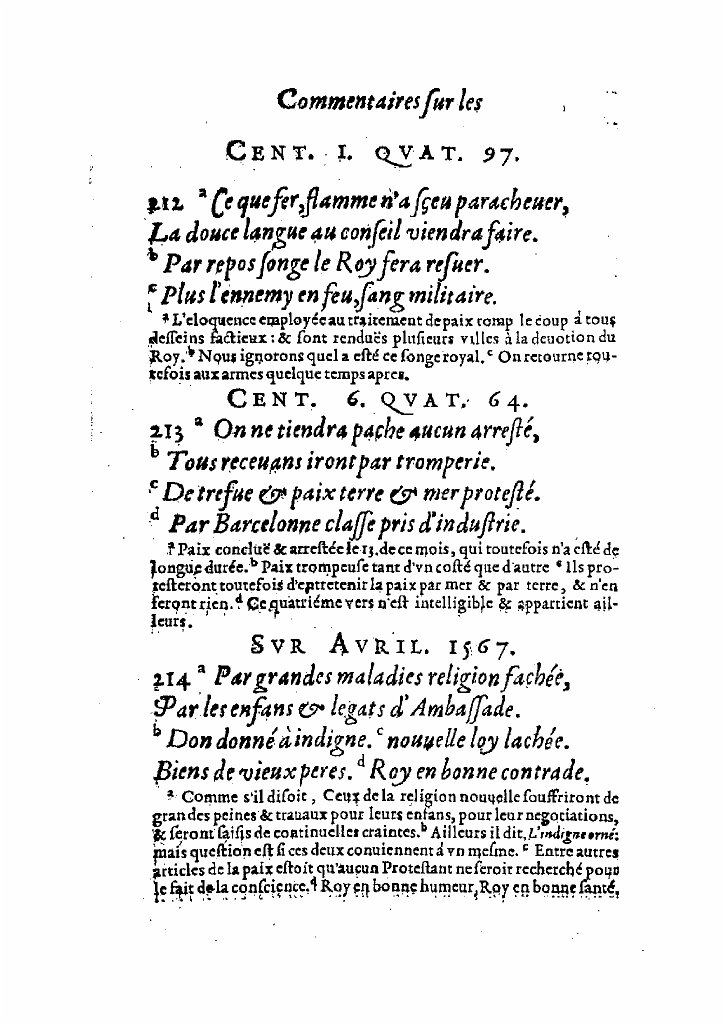 Commentaires ſur les
CENT. I. QVAT. 97.
212 ᵃ Ce que fer, flamme n'a ſçeu paracheuer,
La douce langue au conſeil viendra faire.
ᵇ Par repos ſonge le Roy fera reſuer.
ᶜ Plus l'ennemy en feu, ſang militaire.
ᵃ L'eloquence employée au traitement de paix romp le coup à tous
deſſeins factieux : & ſont renduës pluſieurs villes à la deuotion du
Roy. ᵇ Nous ignorons quel a eſté ce ſonge royal. ᶜ On retourne tou-
tefois aux armes quelque temps apres.
CENT. 6. QVAT. 64.
213 ᵃ On ne tiendra pache aucun arreſté,
ᵇ Tous receuans iront par tromperie.
ᶜ De trefue & paix terre & mer proteſté.
ᵈ Par Barcelonne claſſe pris d'induſtrie.
ᵃ Paix concluë & arreſtée le 13. de ce mois, qui toutefois n'a eſté de
longue durée. ᵇ Paix trompeuſe tant d'vn coſté que d'autre ᶜ Ils pro-
teſteront toutefois d'entretenir la paix par mer & par terre, & n'en
feront rien. ᵈ Ce quatriéme vers n'eſt intelligible & appartient ail-
leurs.
SVR AVRIL. 1567.
214 ᵃ Par grandes maladies religion fachée,
Par les enfans & legats d'Ambaſſade.
ᵇ Don donné à indigne. ᶜ nouuelle loy lachée.
Biens de vieux peres. ᵈ Roy en bonne contrade.
ᵃ Comme s'il diſoit, Ceux de la religion nouuelle ſouffriront de
grandes peines & trauaux pour leurs enfans, pour leur negotiations,
& ſeront ſaiſis de continuelles craintes. ᵇ Ailleurs il dit, L'indigne orné:
mais queſtion eſt ſi ces deux conuiennent à vn meſme. ᶜ Entre autres
articles de la paix eſtoit qu'aucun Proteſtant ne ſeroit recherché pour
le fait de la conſcience. ᵈ Roy en bonne humeur, Roy en bonne ſanté,